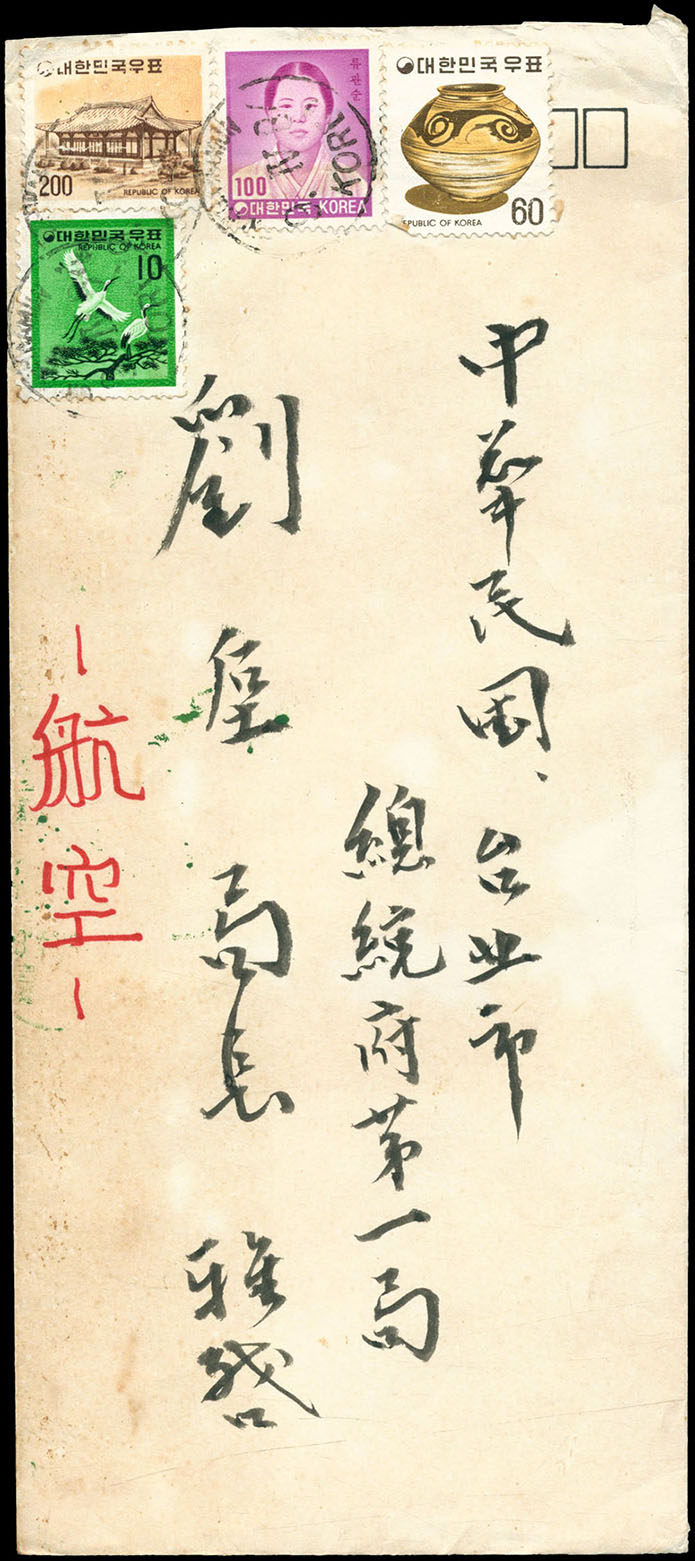 대한민국우표
200
REPUBLIC OF KOREA
류관순
100
대한민국 KOREA
대한민국우표
EPUBLIC OF KOREA
60
대한민국우표
REPUBLIC OF KOREA
10
中華民國、台北市
總統府第一局
劉垕局長 雅啓
航空